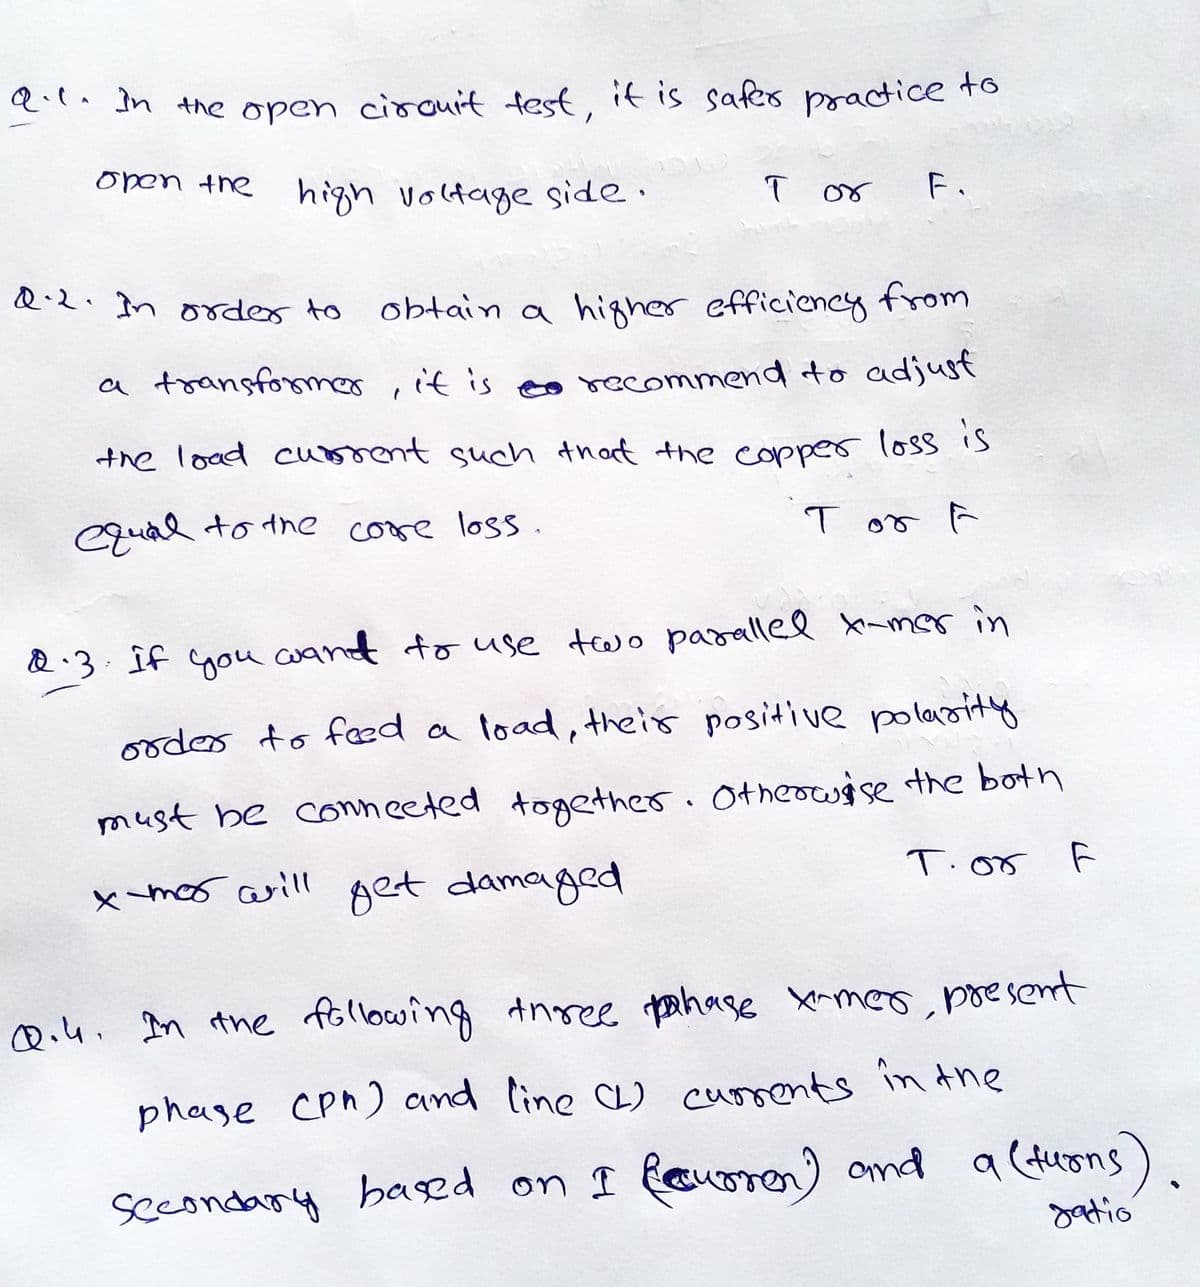 Q.1. In the open circuit test, it is safer practice to
open the high voltage side. T or F.
Q.2. In order to obtain a higher efficiency from
a transformer, it is recommend to adjust
the load current such that the copper loss is
equal to the core loss. T or F
Q.3. If you want to use two parallel x-mer in
order to feed a load, their positive polarity
must be connected together. Otherwise the both
x-mer will get damaged T. or F
Q.4. In the following three phase x-mer, present
phase (ph) and line (L) currents in the
secondary based on I (curren) and a (turns).
ratio